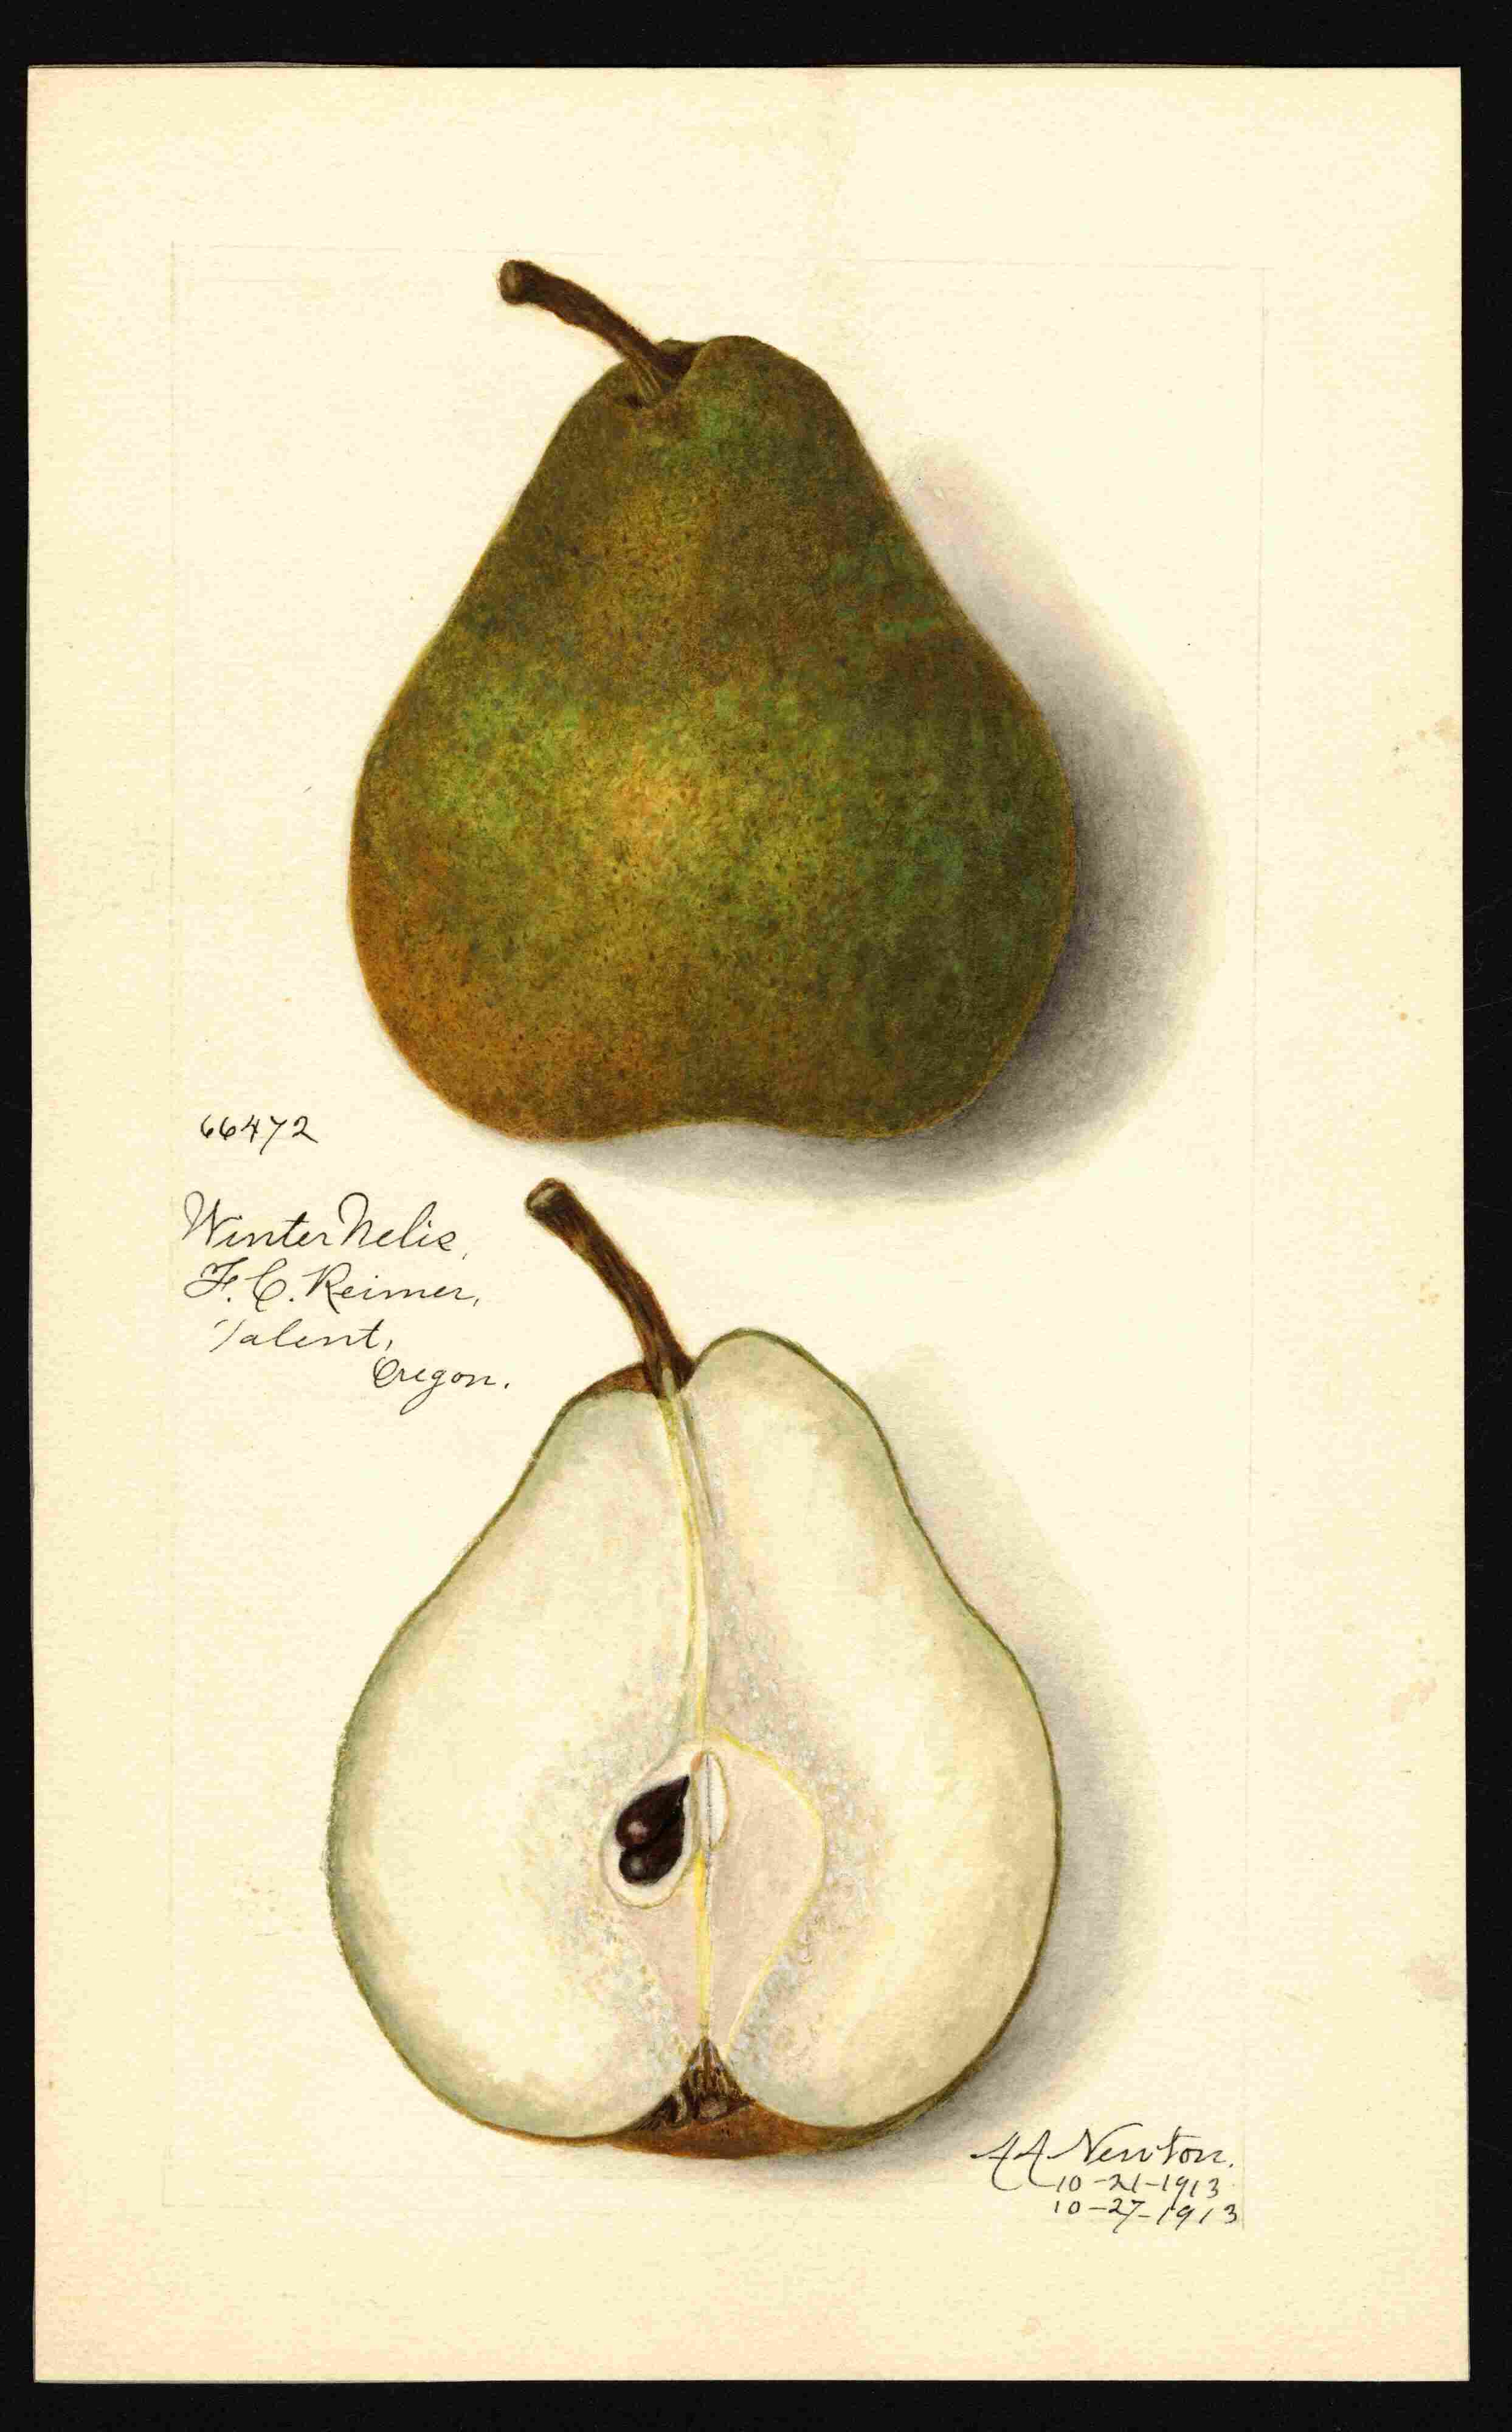 66472
Winter Nelis,
F. C. Reimer,
Talent,
Oregon.
AA Newton.
10-21-1913
10-27-1913